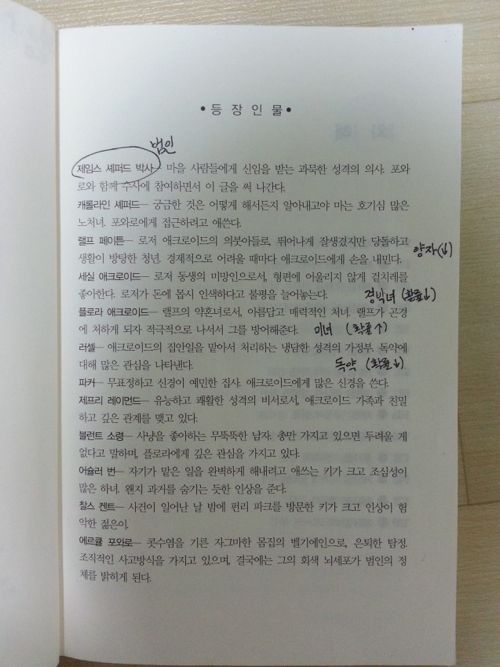 • 등 장 인 물 •
범인
제임스 셰퍼드 박사— 마을 사람들에게 신임을 받는 과묵한 성격의 의사. 포와
로와 함께 수사에 참여하면서 이 글을 써 나간다.
캐롤라인 셰퍼드— 궁금한 것은 어떻게 해서든지 알아내고야 마는 호기심 많은
노처녀. 포와로에게 접근하려고 애쓴다.
랠프 페이튼— 로저 애크로이드의 의붓아들로, 뛰어나게 잘생겼지만 당돌하고
생활이 방탕한 청년. 경제적으로 어려울 때마다 애크로이드에게 손을 내민다.
양자(↓)
세실 애크로이드— 로저 동생의 미망인으로서, 형편에 어울리지 않게 겉치레를
좋아한다. 로저가 돈에 몹시 인색하다고 불평을 늘어놓는다.
경박녀 (확률↓)
플로라 애크로이드— 랠프의 약혼녀로서, 아름답고 매력적인 처녀. 랠프가 곤경
에 처하게 되자 적극적으로 나서서 그를 방어해준다.
미녀 (확률↑)
러셀— 애크로이드의 집안일을 맡아서 처리하는 냉담한 성격의 가정부. 독약에
대해 많은 관심을 나타낸다.
독약 (확률↓)
파커— 무표정하고 신경이 예민한 집사. 애크로이드에게 많은 신경을 쓴다.
제프리 레이먼드— 유능하고 쾌활한 성격의 비서로서, 애크로이드 가족과 친밀
하고 깊은 관계를 맺고 있다.
블런트 소령— 사냥을 좋아하는 무뚝뚝한 남자. 총만 가지고 있으면 두려울 게
없다고 말하며, 플로라에게 깊은 관심을 가지고 있다.
어슐러 번— 자기가 맡은 일을 완벽하게 해내려고 애쓰는 키가 크고 조심성이
많은 하녀. 왠지 과거를 숨기는 듯한 인상을 준다.
찰스 켄트— 사건이 일어난 날 밤에 펀리 파크를 방문한 키가 크고 인상이 험
악한 젊은이.
에르큘 포와로— 콧수염을 기른 자그마한 몸집의 벨기에인으로, 은퇴한 탐정.
조직적인 사고방식을 가지고 있으며, 결국에는 그의 회색 뇌세포가 범인의 정
체를 밝히게 된다.